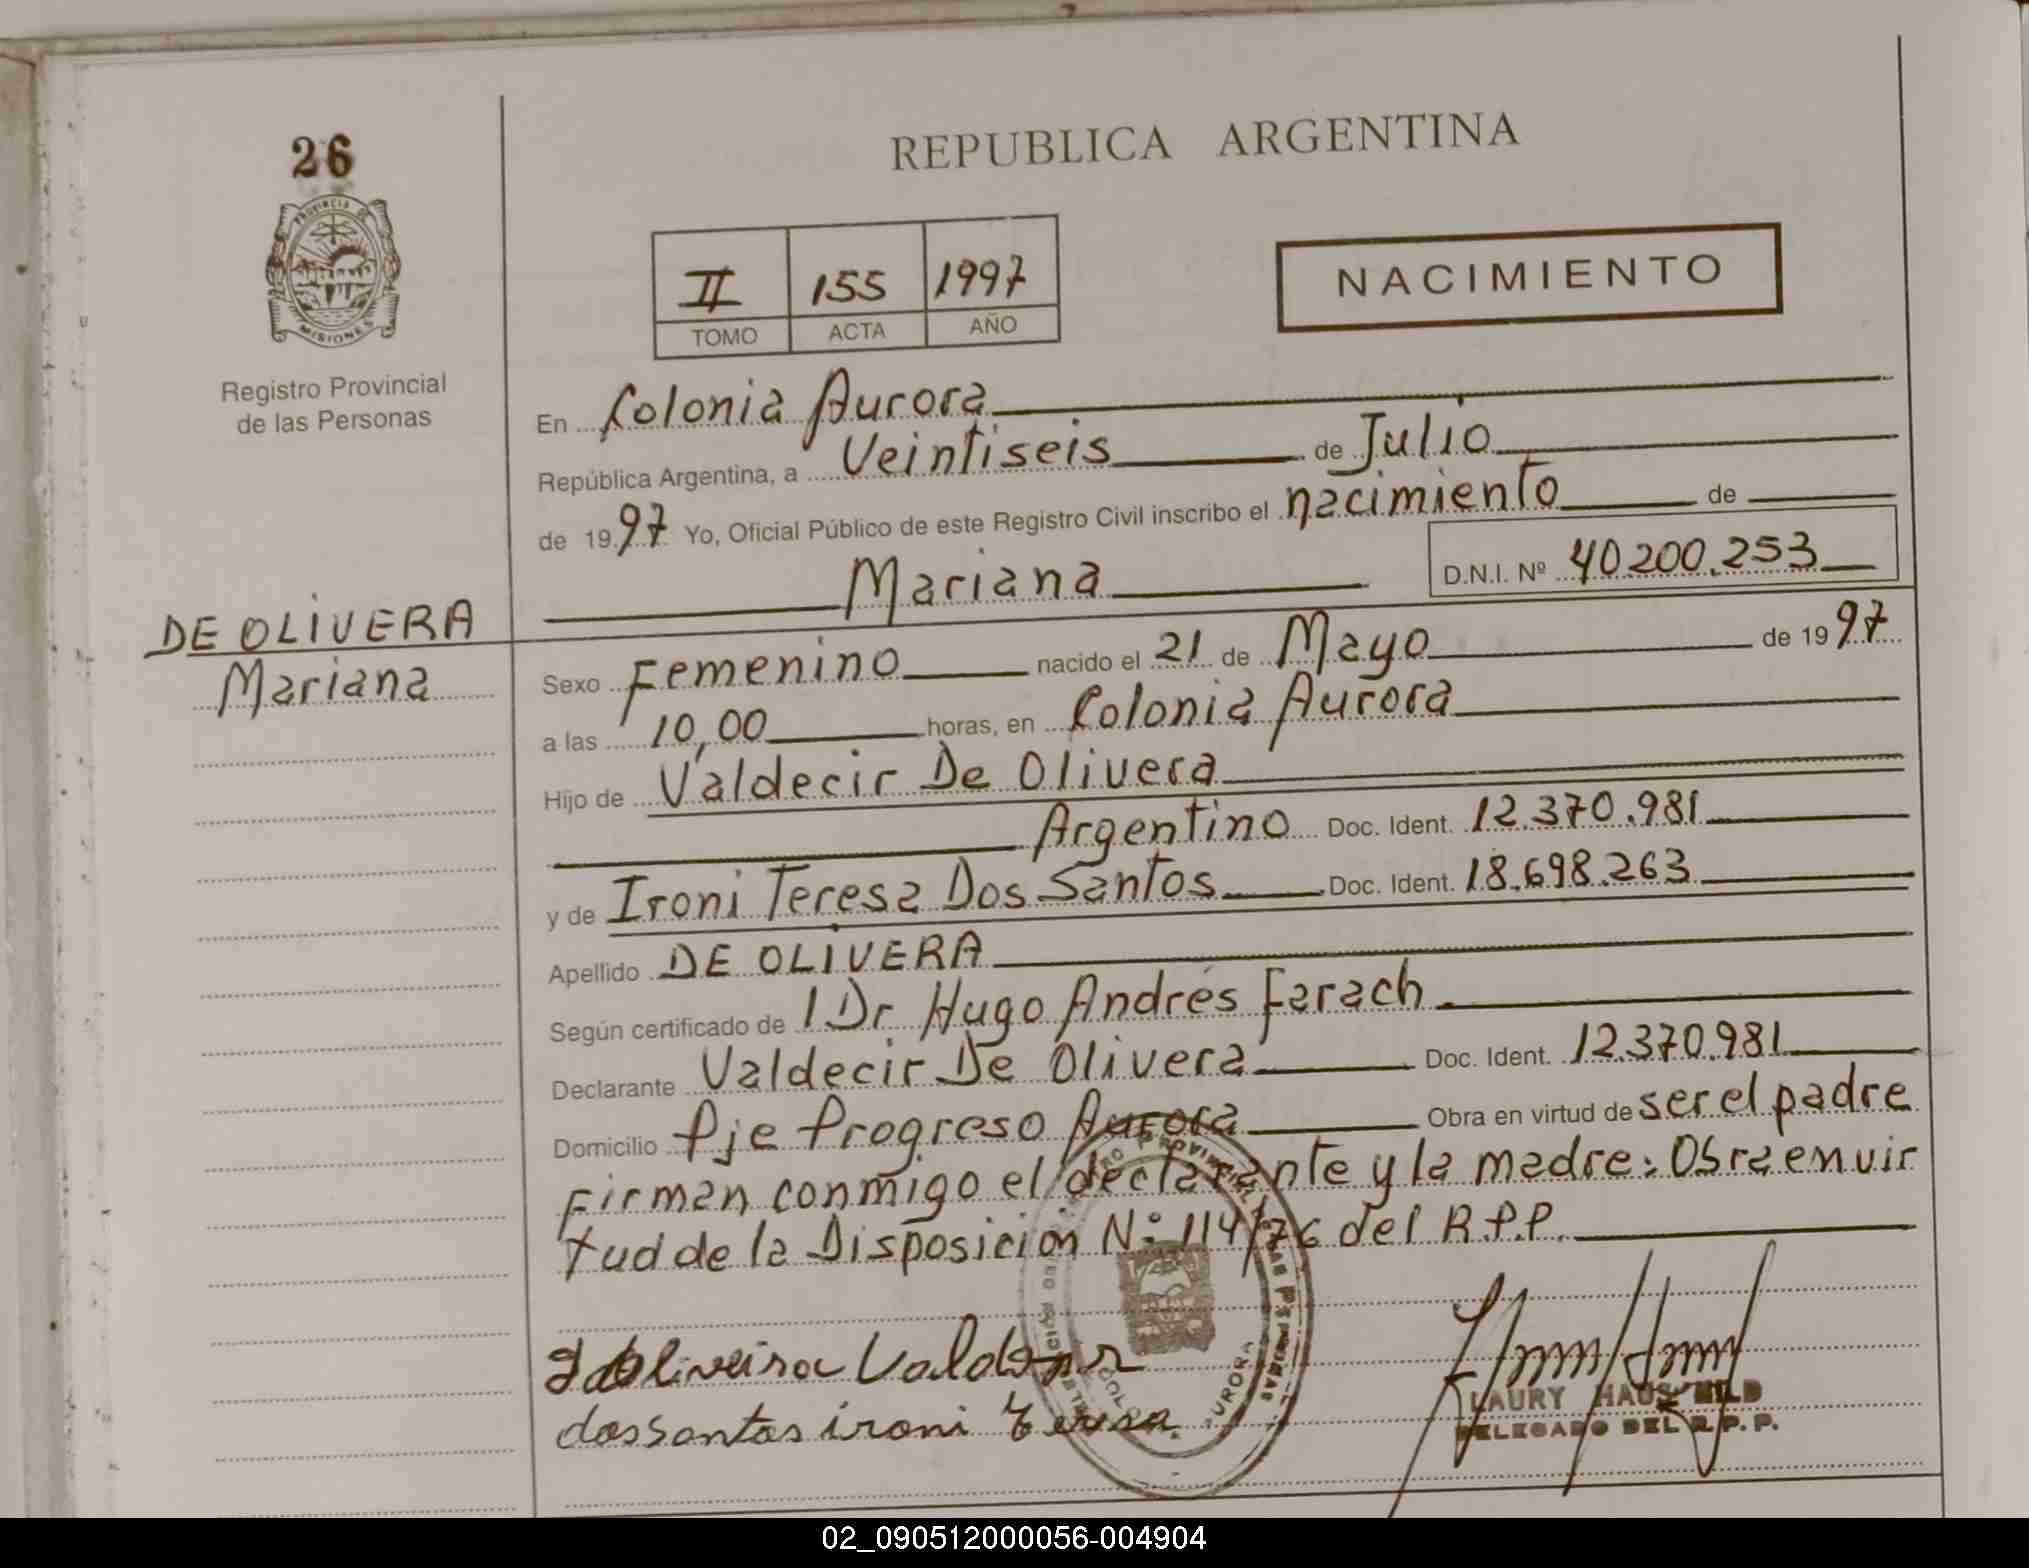 26
PROVINCIA DE
MISIONES
Registro Provincial
de las Personas
REPUBLICA ARGENTINA
II 155 1997
TOMO ACTA AÑO
NACIMIENTO
En Colonia Aurora
República Argentina, a Veintiseis de Julio
de 1997 Yo, Oficial Público de este Registro Civil inscribo el nacimiento de
Mariana D.N.I. Nº 40200.253
DE OLIVERA
Mariana
Sexo Femenino nacido el 21 de Mayo de 1997
a las 10,00 horas, en Colonia Aurora
Hijo de Valdecir De Olivera
Argentino Doc. Ident. 12.370.981
y de Ironi Teresa Dos Santos Doc. Ident. 18.698.263
Apellido DE OLIVERA
Según certificado de l Dr Hugo Andrés Farach
Declarante Valdecir De Olivera Doc. Ident. 12.370.981
Domicilio Pje Progreso Aurora Obra en virtud de ser el padre
Firman conmigo el declarante y la madre: Obra en vir
tud de la Disposicion Nº 114/76 del R.P.P.
Oliveira
dos santos ironi teresa
AURORA
LAURY HAUSCHILD
DELEGADO DEL R.P.P.
02_090512000056-004904